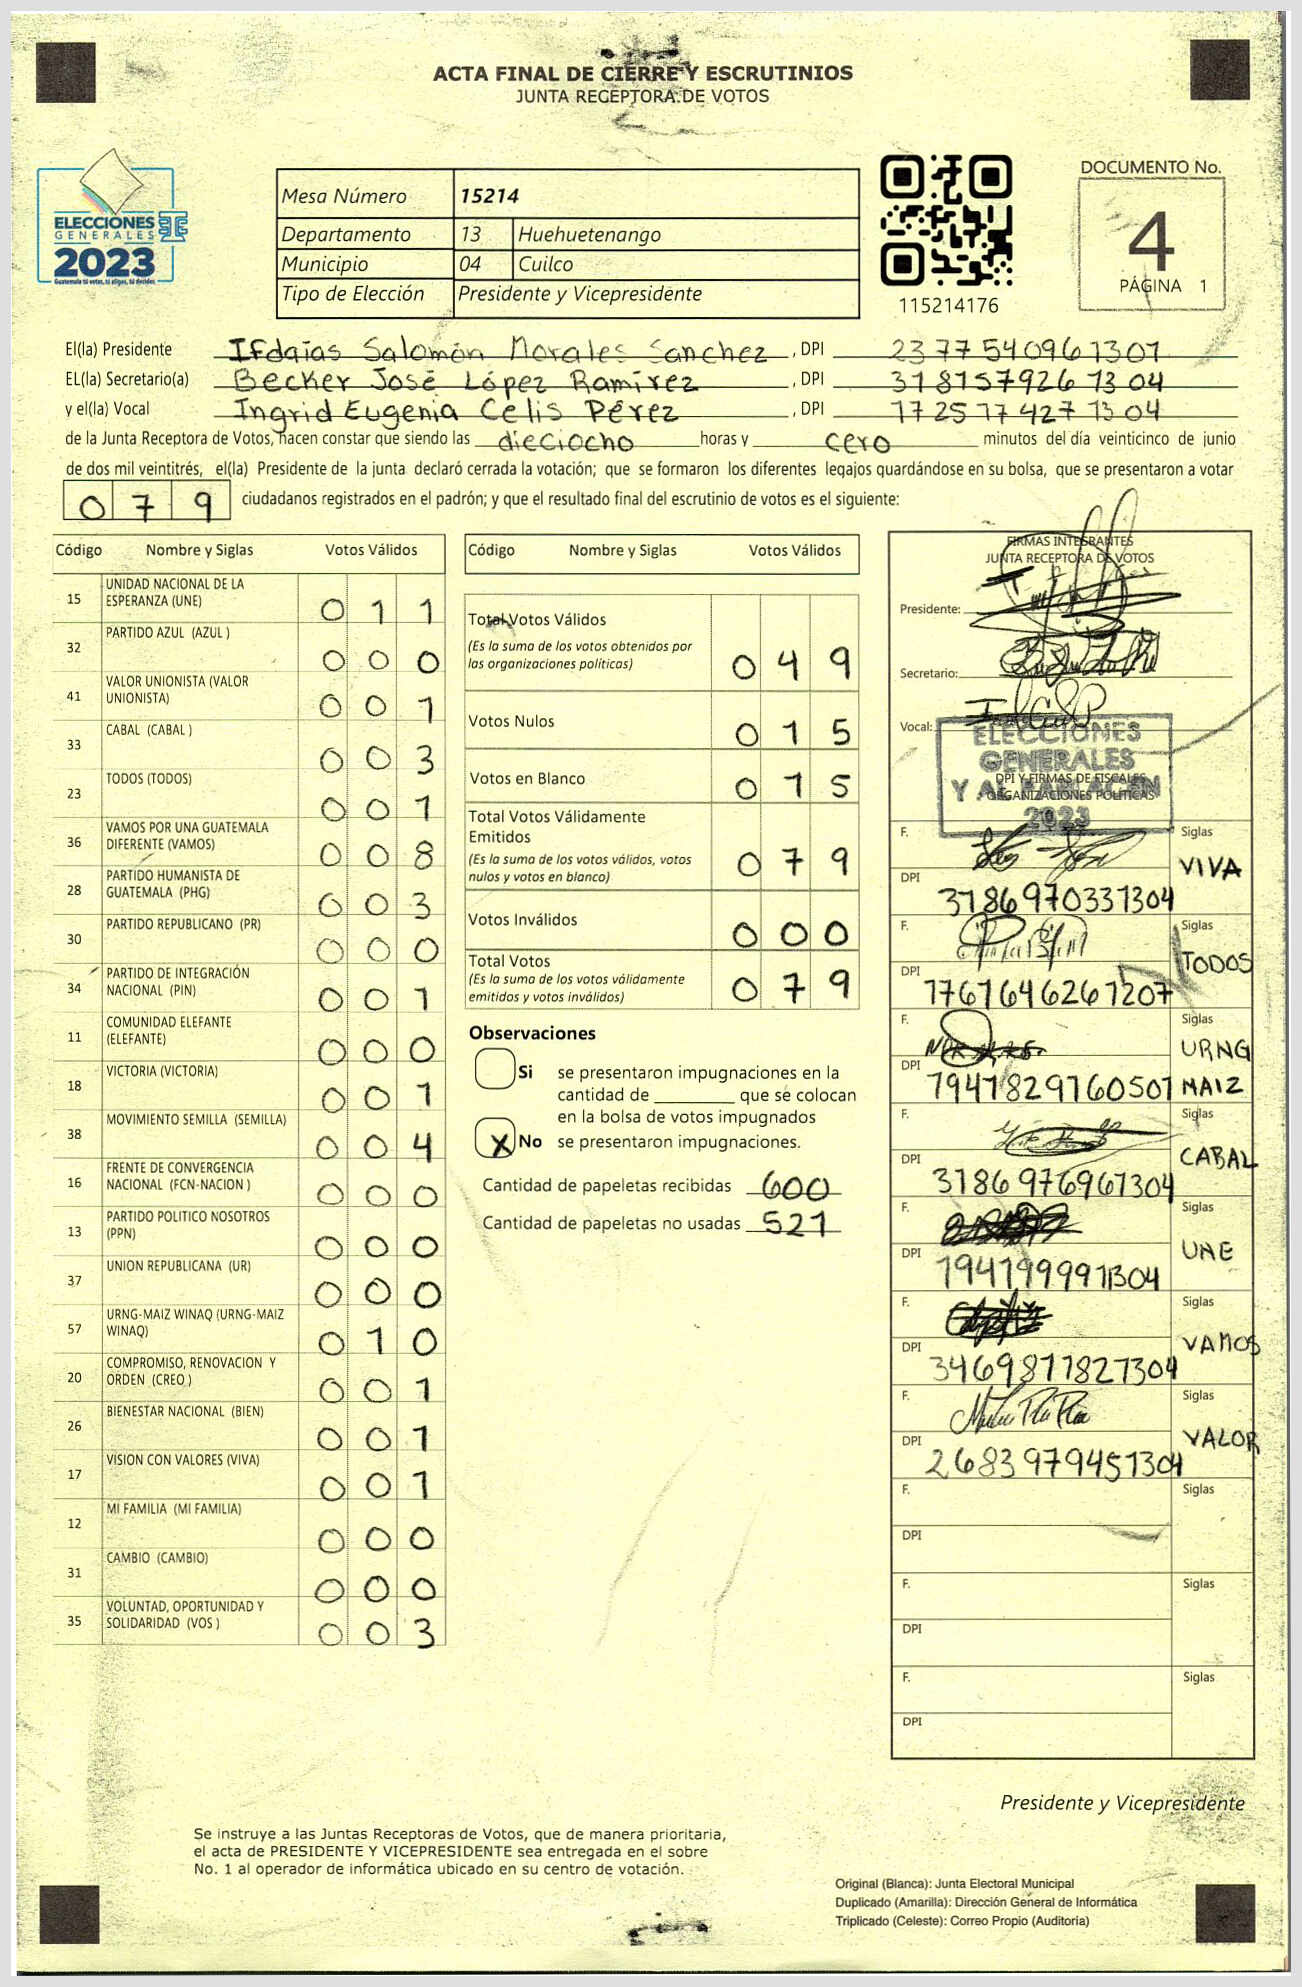 ACTA FINAL DE CIERRE Y ESCRUTINIOS
JUNTA RECEPTORA DE VOTOS
ELECCIONES
GENERALES
2023
Guatemala tú votas, tú eliges, tú decides
Mesa Número 15214
Departamento 13 Huehuetenango
Municipio 04 Cuilco
Tipo de Elección Presidente y Vicepresidente
115214176
DOCUMENTO No.
4
PÁGINA 1
El(la) Presidente Ifdaías Salomón Morales Sanchez, DPI 2377540961301
EL(la) Secretario(a) Becker José López Ramírez, DPI 3181579261304
y el(la) Vocal Ingrid Eugenia Celis Pérez, DPI 1725174271304
de la Junta Receptora de Votos, hacen constar que siendo las dieciocho horas y cero minutos del día veinticinco de junio
de dos mil veintitrés, el(la) Presidente de la junta declaró cerrada la votación; que se formaron los diferentes legajos guardándose en su bolsa, que se presentaron a votar
079 ciudadanos registrados en el padrón; y que el resultado final del escrutinio de votos es el siguiente:
Código Nombre y Siglas Votos Válidos
15 UNIDAD NACIONAL DE LA
ESPERANZA (UNE) 011
32 PARTIDO AZUL (AZUL ) 000
41 VALOR UNIONISTA (VALOR
UNIONISTA) 001
33 CABAL (CABAL ) 003
23 TODOS (TODOS) 001
36 VAMOS POR UNA GUATEMALA
DIFERENTE (VAMOS) 008
28 PARTIDO HUMANISTA DE
GUATEMALA (PHG) 003
30 PARTIDO REPUBLICANO (PR) 000
34 PARTIDO DE INTEGRACIÓN
NACIONAL (PIN) 001
11 COMUNIDAD ELEFANTE
(ELEFANTE) 000
18 VICTORIA (VICTORIA) 001
38 MOVIMIENTO SEMILLA (SEMILLA) 004
16 FRENTE DE CONVERGENCIA
NACIONAL (FCN-NACION ) 000
13 PARTIDO POLITICO NOSOTROS
(PPN) 000
37 UNION REPUBLICANA (UR) 000
57 URNG-MAIZ WINAQ (URNG-MAIZ
WINAQ) 010
20 COMPROMISO, RENOVACION Y
ORDEN (CREO ) 001
26 BIENESTAR NACIONAL (BIEN) 001
17 VISION CON VALORES (VIVA) 001
12 MI FAMILIA (MI FAMILIA) 000
31 CAMBIO (CAMBIO) 000
35 VOLUNTAD, OPORTUNIDAD Y
SOLIDARIDAD (VOS ) 003
Código Nombre y Siglas Votos Válidos
Total Votos Válidos
(Es la suma de los votos obtenidos por
las organizaciones políticas) 049
Votos Nulos 015
Votos en Blanco 015
Total Votos Válidamente
Emitidos
(Es la suma de los votos válidos, votos
nulos y votos en blanco) 079
Votos Inválidos 000
Total Votos
(Es la suma de los votos válidamente
emitidos y votos inválidos) 079
Observaciones
Si se presentaron impugnaciones en la
cantidad de ________ que se colocan
en la bolsa de votos impugnados
X No se presentaron impugnaciones.
Cantidad de papeletas recibidas 600
Cantidad de papeletas no usadas 521
FIRMAS INTEGRANTES
JUNTA RECEPTORA DE VOTOS
Presidente:
Secretario:
Vocal:
ELECCIONES
GENERALES
Y AL PARLACEN
2023
DPI Y FIRMAS DE FISCALES
ORGANIZACIONES POLÍTICAS
F. Siglas
VIVA
DPI 3186970331304
F. Siglas
TODOS
DPI 1767646261207
F. Siglas
URNG
MAIZ
DPI 1941829760501
F. Siglas
CABAL
DPI 3186976961304
F. Siglas
UNE
DPI 1941999911304
F. Siglas
VAMOS
DPI 3469811821304
F. Siglas
VALOR
DPI 2683979451304
F. Siglas
DPI
F. Siglas
DPI
F. Siglas
DPI
Presidente y Vicepresidente
Se instruye a las Juntas Receptoras de Votos, que de manera prioritaria,
el acta de PRESIDENTE Y VICEPRESIDENTE sea entregada en el sobre
No. 1 al operador de informática ubicado en su centro de votación.
Original (Blanca): Junta Electoral Municipal
Duplicado (Amarilla): Dirección General de Informática
Triplicado (Celeste): Correo Propio (Auditoría)